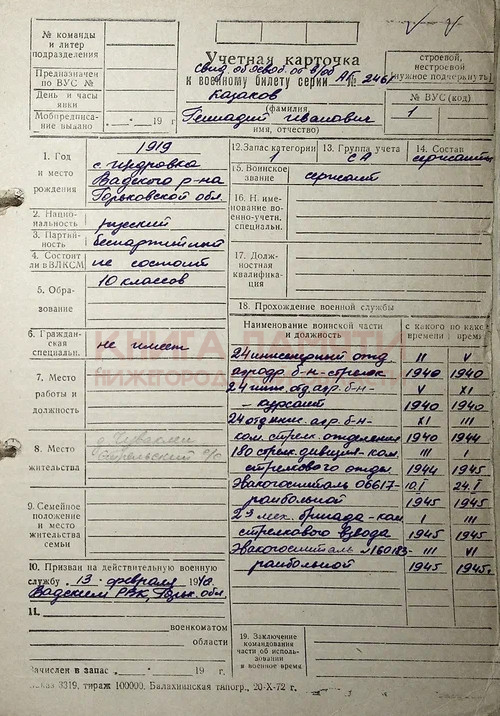 № команды
и литер
подразделения
Предназначен
по ВУС №
День и часы
явки
Мобпредписа-
ние выдано 19 г
Учетная карточка
Свид. об освоб. от в/об
к военному билету серии АБ № 2461
Казаков
(фамилия,
Геннадий Иванович
имя, отчество)
строевой,
нестроевой
(нужное подчеркнуть)
№ ВУС (код)
1
1. Год
и место
рождения
1919
Вадского р-на
Горьковской обл.
12. Запас категории 1
13. Группа учета СА
14. Состав сержанты
15. Воинское
звание
сержант
16. Н. име-
нование во-
енно-учетн.
специальн.
17. Долж-
ностная
квалифика-
ция
2. Нацио-
нальность
русский
3. Партий-
ность
беспартийный
4. Состоит
ли в ВЛКСМ
не состоит
5. Обра-
зование
10 классов
6. Граждан-
ская
специальн.
не имеет
7. Место
работы и
должность
8. Место
жительства
9. Семейное
положение
и место
жительства
семьи
10. Призван на действительную военную
службу „13" февраля 1940.
Вадским РВК, Горьк. обл.
11.
военкоматом
области
Зачислен в запас 19 г.
18. Прохождение военной службы
Наименование воинской части
и должность
с какого
времени
по какое
время
24 инженерный отд. II V
аэродр. б-н - стрелок 1940 1940
24 инж. отд. аэр. б-н - V XI
курсант 1940 1940
24 отд. инж. аэр. б-н - XI III
ком. стрел. отделения 1940 1944
180 стрел. дивизия - ком. III I
стрелкового отдел. 1944 1945
Эвакогоспиталь 06617 - 10.I 24.I
ранбольной 1945 1945
23 мех. бригада - ком. I III
стрелкового взвода 1945 1945
Эвакогоспиталь № 160183 - III VI
ранбольной 1945 1945г.
19. Заключение
командования
части об исполь-
зовании
в военное время.
Заказ 3319, тираж 100000. Балахнинская типогр., 20-X-72 г.
КНИГА ПАМЯТИ